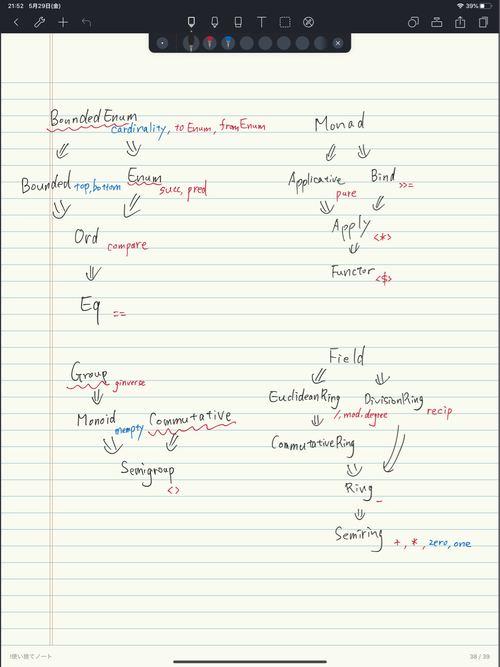 21:52 5月29日(金)
39%
T
BoundedEnum
cardinality, toEnum, fromEnum
Bounded top, bottom
Enum
succ, pred
Ord
compare
Eq
==
Monad
Applicative
pure
Bind
>>=
Apply
<*>
Functor
<$>
Group
ginverse
Monoid
mempty
Commutative
Semigroup
<>
Field
EuclideanRing
/, mod, degree
DivisionRing
recip
CommutativeRing
Ring
-
Semiring
+, *, zero, one
!使い捨てノート
38 / 39